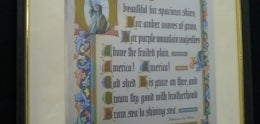 beautiful for spacious skies,
For amber waves of grain,
For purple mountain majesties
Above the fruited plain,
America! America!
God shed His grace on thee, and
Crown thy good with brotherhood
From sea to shining sea.